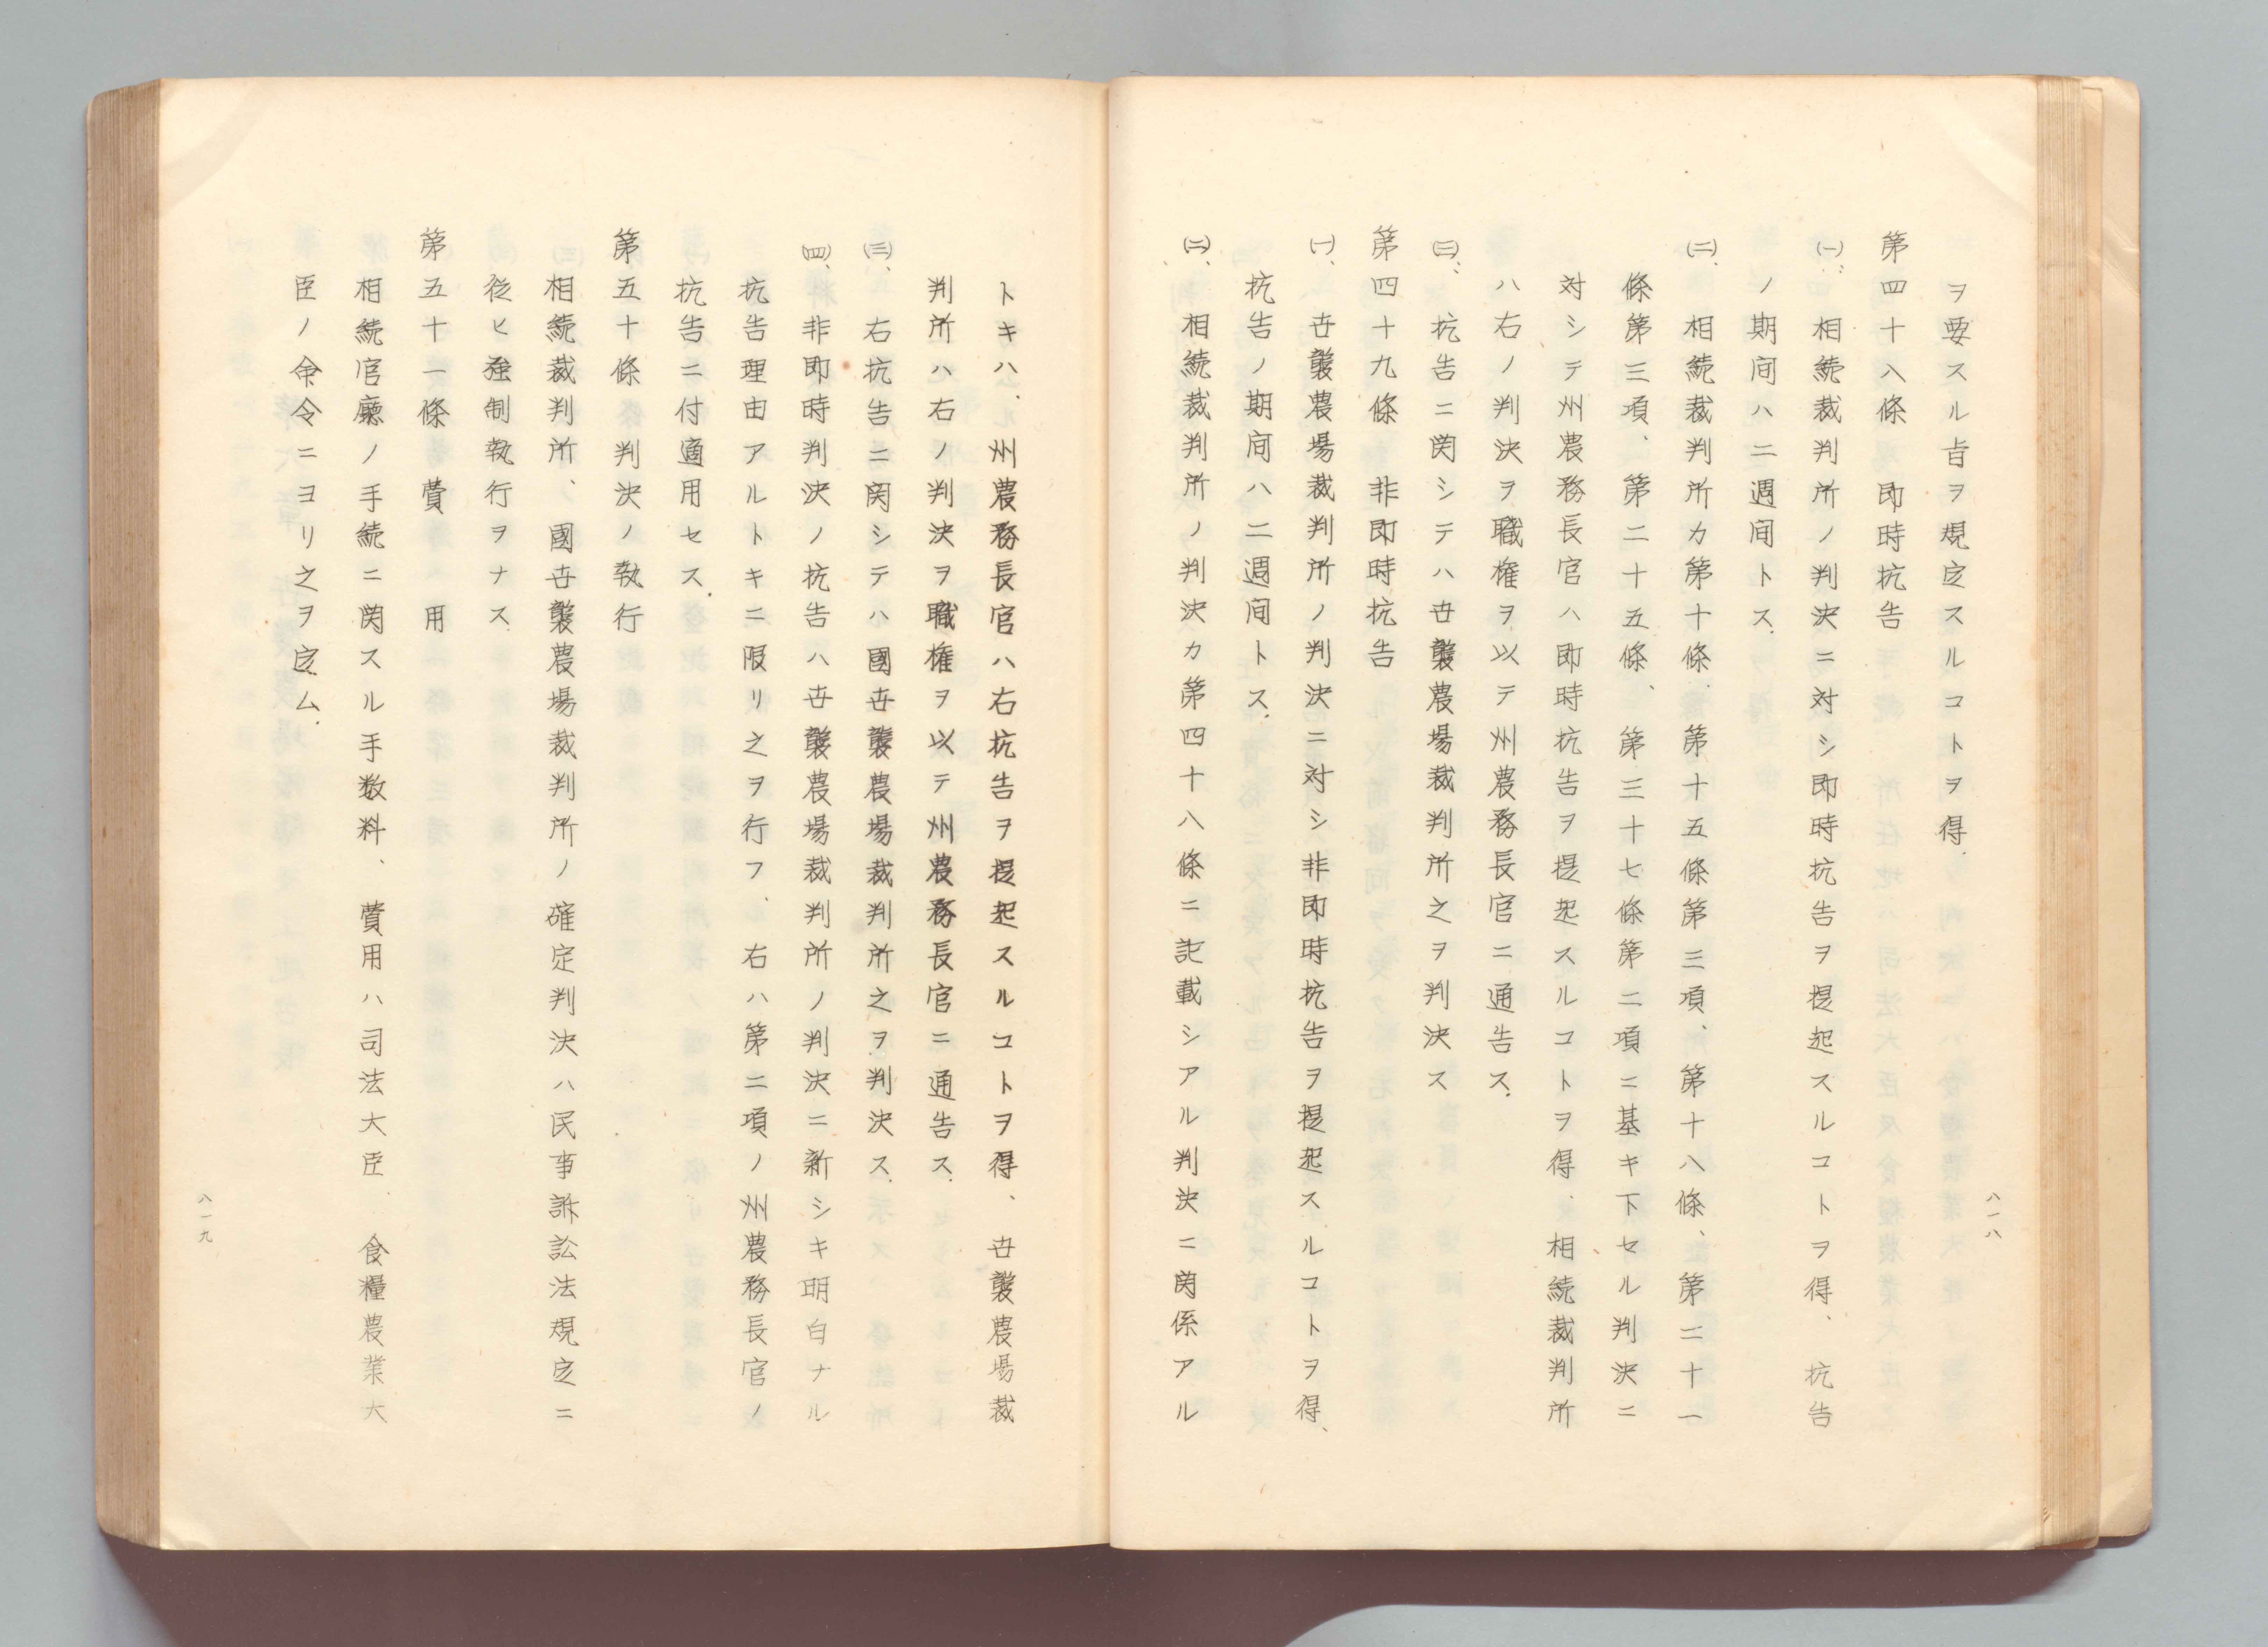 ヲ要スル旨ヲ規定スルコトヲ得、
第四十八條　即時抗告
(一)、相続裁判所ノ判決ニ対シ即時抗告ヲ提起スルコトヲ得、抗告
ノ期间ハ二週间トス、
(二)、相続裁判所カ第十條、第十五條第三項、第十八條、第二十一
條第三項、第二十五條、第三十七條第二項ニ基キ下セル判決ニ
対シテ州農務長官ハ即時抗告ヲ提起スルコトヲ得、相続裁判所
ハ右ノ判決ヲ職権ヲ以テ州農務長官ニ通告ス、
(三)、抗告ニ関シテハ世襲農場裁判所之ヲ判決ス
第四十九條　非即時抗告
(一)、世襲農場裁判所ノ判決ニ対シ非即時抗告ヲ提起スルコトヲ得、
抗告ノ期间ハ二週间トス、
(二)、相続裁判所ノ判決カ第四十八條ニ記載シアル判決ニ関係アル
八一八
トキハ、州農務長官ハ右抗告ヲ提起スルコトヲ得、世襲農場裁
判所ハ右ノ判決ヲ職権ヲ以テ州農務長官ニ通告ス、
(三)、右抗告ニ関シテハ國世襲農場裁判所之ヲ判決ス、
(四)、非即時判決ノ抗告ハ世襲農場裁判所ノ判決ニ新シキ明白ナル
抗告理由アルトキニ限リ之ヲ行フ、右ハ第二項ノ州農務長官ノ
抗告ニ付適用セス、
第五十條　判決ノ執行
相続裁判所、國世襲農場裁判所ノ確定判決ハ民事訴訟法規定ニ
従ヒ強制執行ヲナス
第五十一條　費　用
相続官廳ノ手続ニ関スル手数料、費用ハ司法大臣　食糧農業大
臣ノ命令ニヨリ之ヲ定ム、
八一九